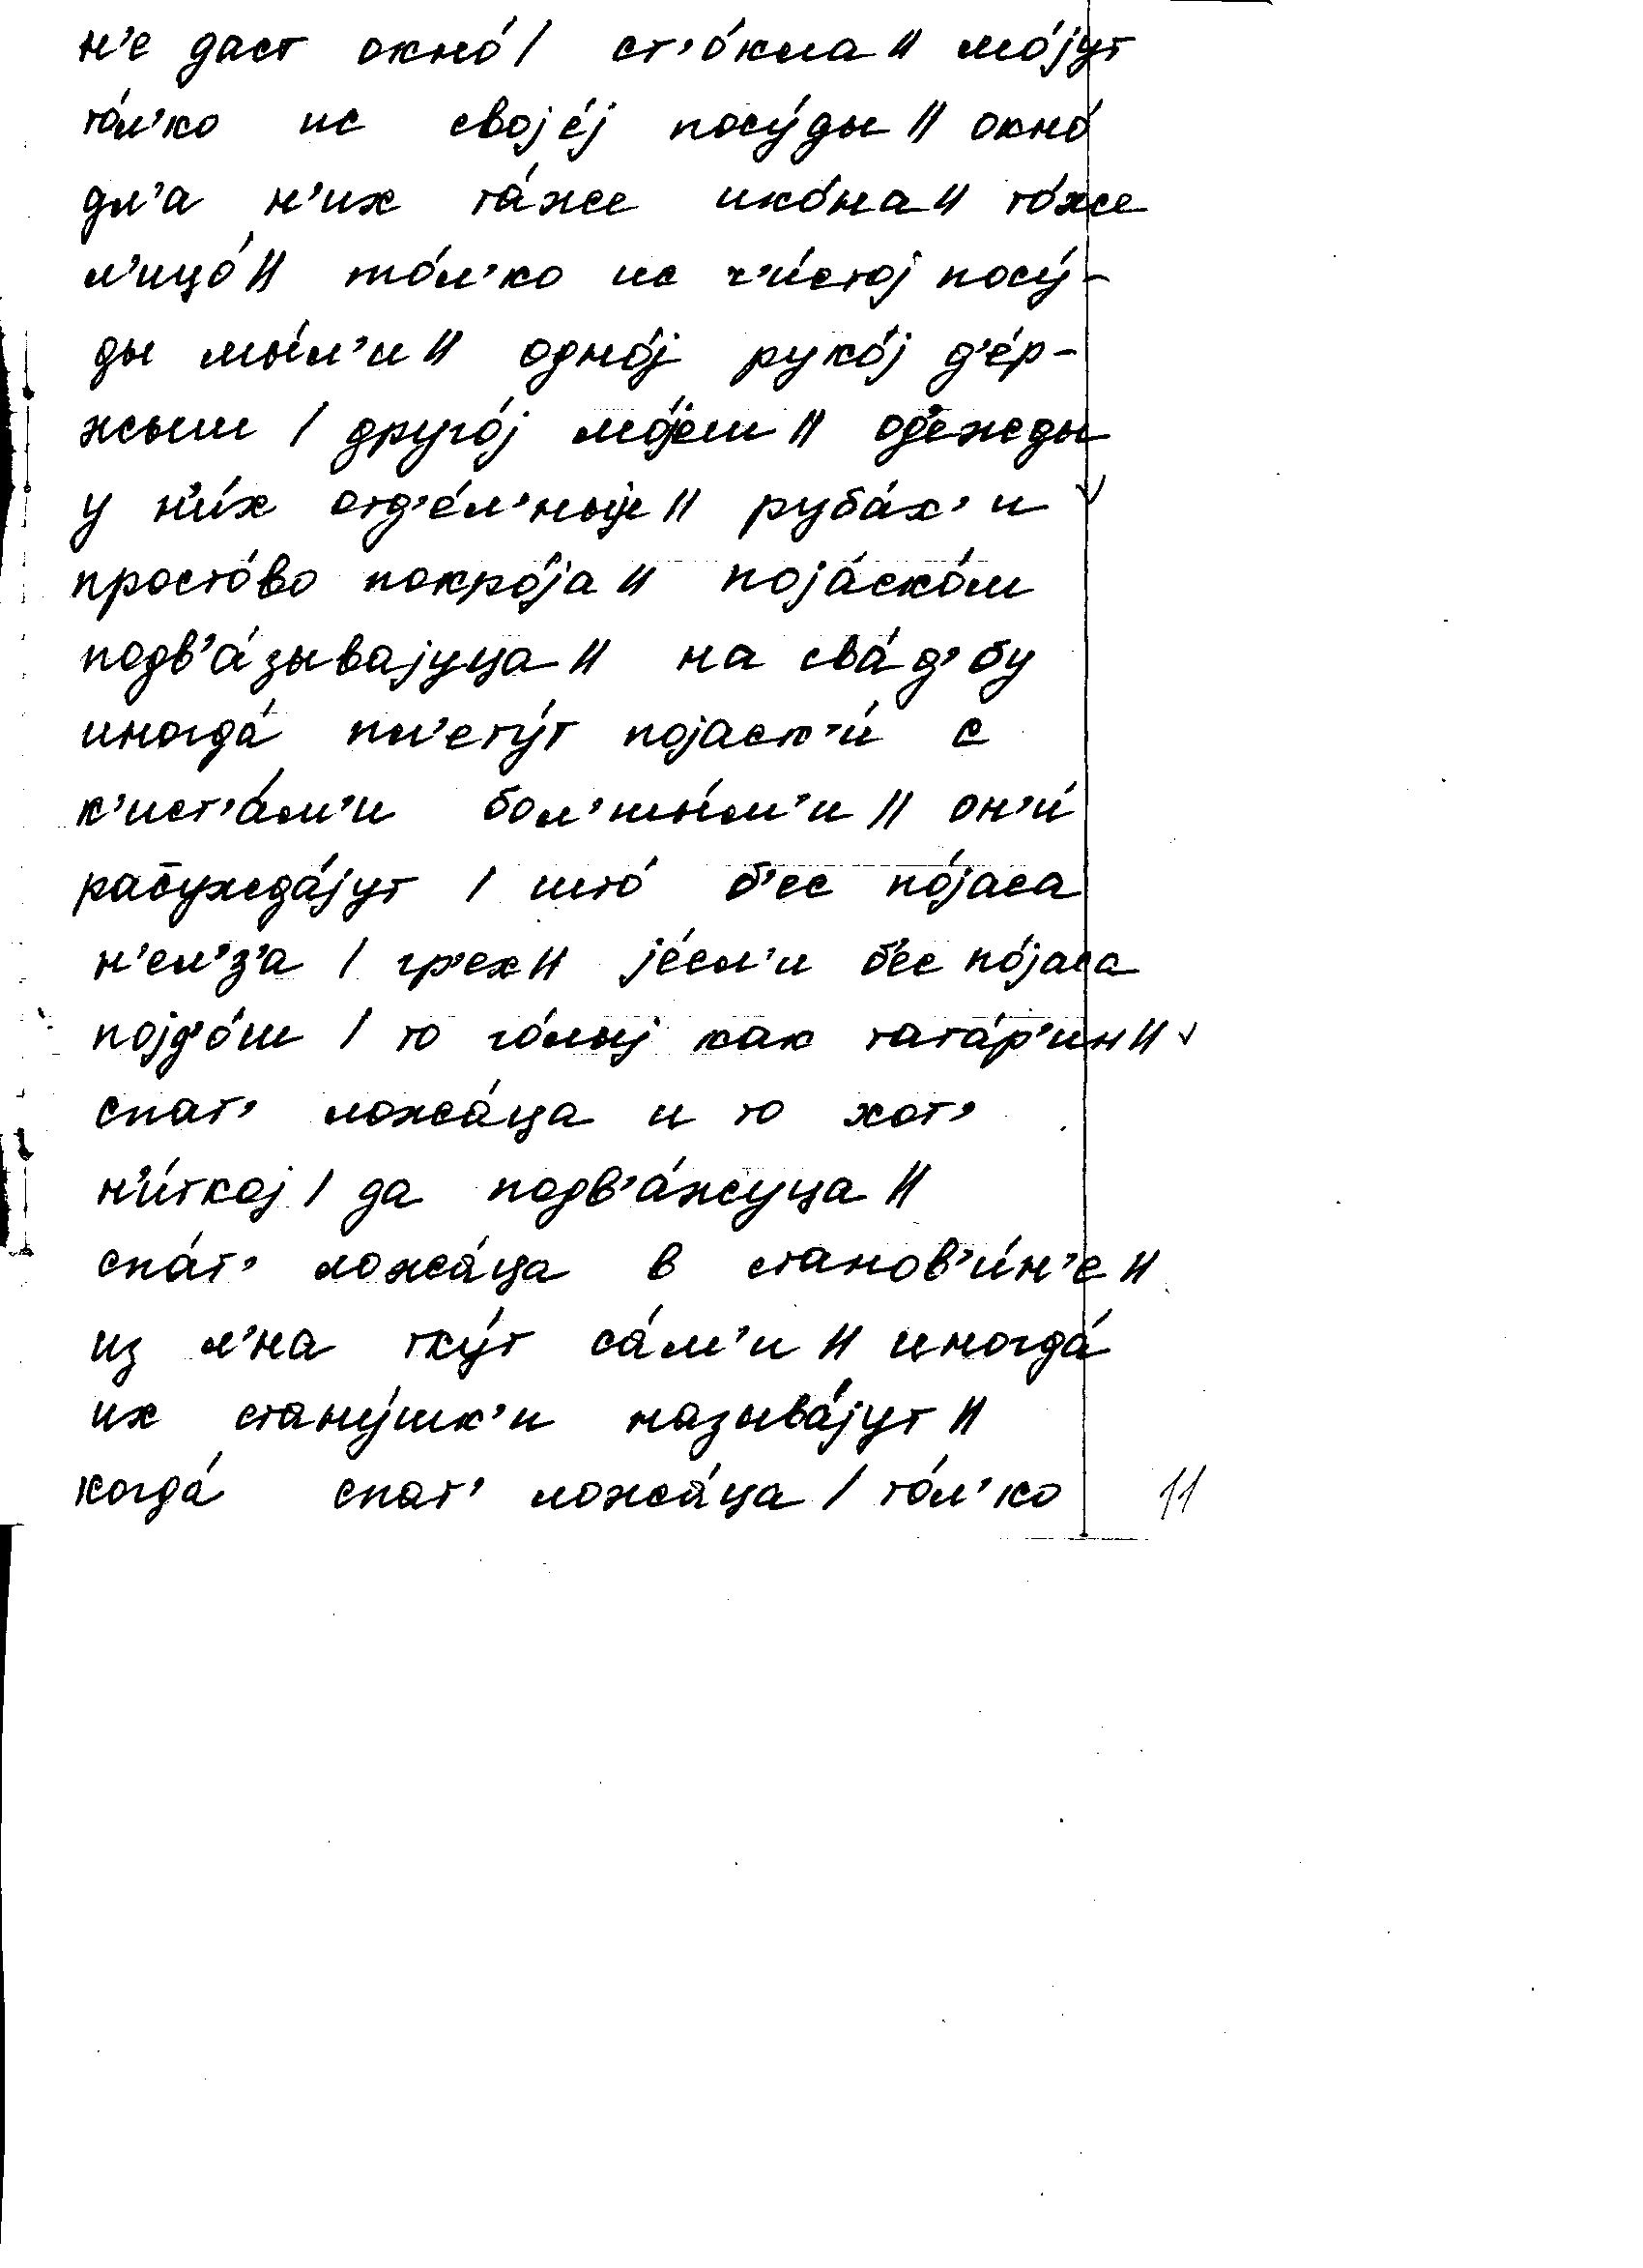 н'е даст окно́ / ст'о́кла // мо́jут
то́л'ко ис своjе́j посу́ды // окно́
дл'а н'их та́же ико́на // то́же
л'ицо́ // то́л'ко ис ч'и́стоj посу́-
ды мы́л'и // одно́j руко́j д'е́р-
жыш / друго́j мо́jеш // од'е́жды
у н'и́х отд'е́л'ныjе // руба́х'и
просто́во покро́jа // поjа́ско́м
подв'а́зываjуца // на сва́д'бу
иногда́ пл'ету́т поjаск'и́ с
к'ист'а́м'и бол'шы́м'и // он'и́
расужда́jут / што́ б'ес по́jаса
н'ел'з'а / гр'ех // jе́сл'и б'ес по́jаса
поjд'о́ш / то го́лыj как тата́р'ин //
спат' ложа́ца и то хот'
н'и́ткоj / да подв'а́жуца //
спа́т' ложа́ца в станов'и́н'е //
из л'на тку́т са́м'и // иногда́
их стану́шк'и называ́jут //
когда́ спат' ложа́ца / то́л'ко 11